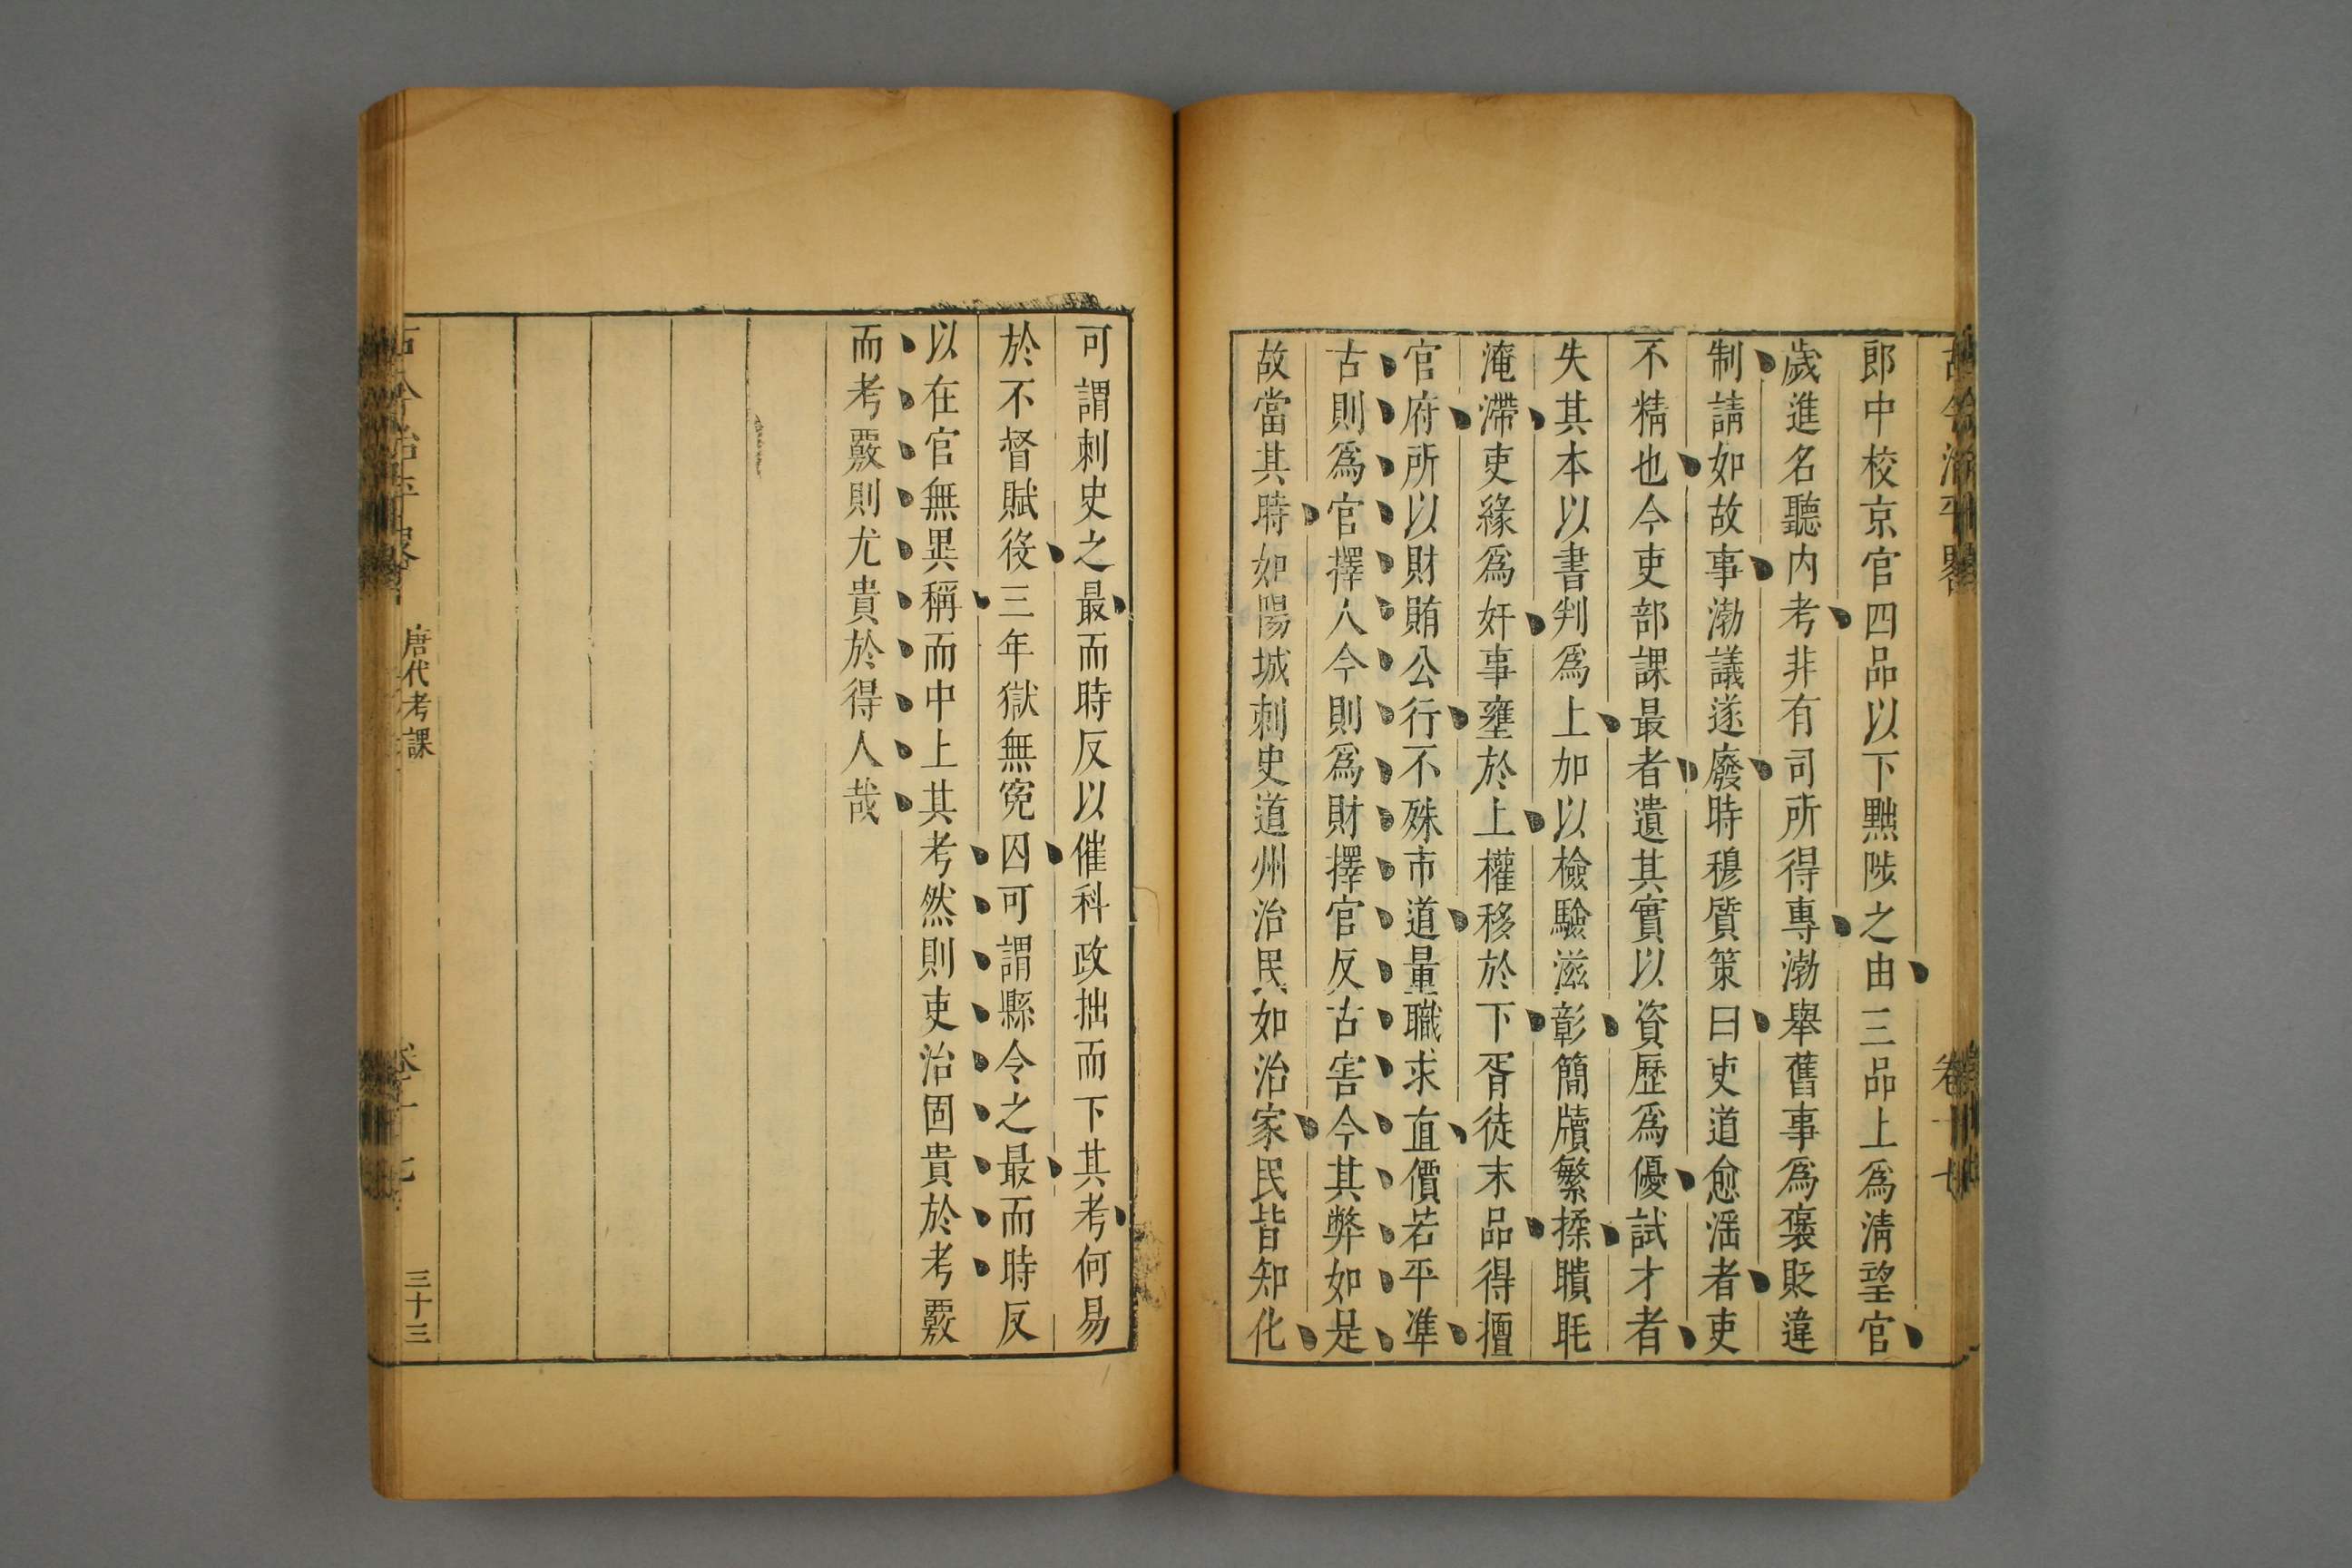 郎中校京官四品以下黜陟之由三品上爲清望官
歲進名聽内考非有司所得專渤舉舊事爲褒貶違
制請如故事渤議遂廢時穆質策曰吏道愈滛者吏
不精也今吏部課最者遺其實以資歷爲優試才者
失其本以書判爲上加以檢驗滋彰簡牘繁揉聵眊
淹滯吏緣爲奸事壅於上權移於下胥徒末品得擅
官府所以財賄公行不殊市道量職求直價若平準
古則爲官擇人今則爲財擇官反古害今其弊如是
故當其時如陽城刺史道州治民如治家民皆知化
可謂刺史之最而時反以催科政拙而下其考何易
於不督賦役三年獄無寃囚可謂縣令之最而時反
以在官無異稱而中上其考然則吏治固貴於考覈
而考覈則尤貴於得人哉
唐代考課
三十三